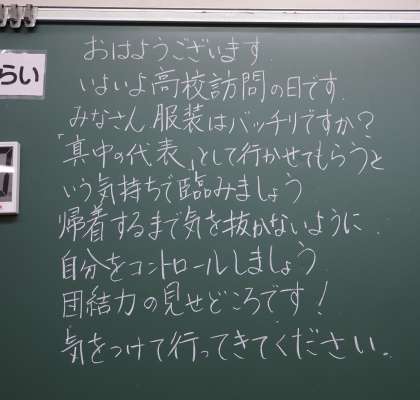 らい
おはようございます.
いよいよ高校訪問の日です.
みなさん服装はバッチリですか?
「真中の代表」として行かせてもらうと
いう気持ちで臨みましょう
帰着するまで気を抜かないように.
自分をコントロールしましょう
団結力の見せどころです!
気をつけて行ってきてください.